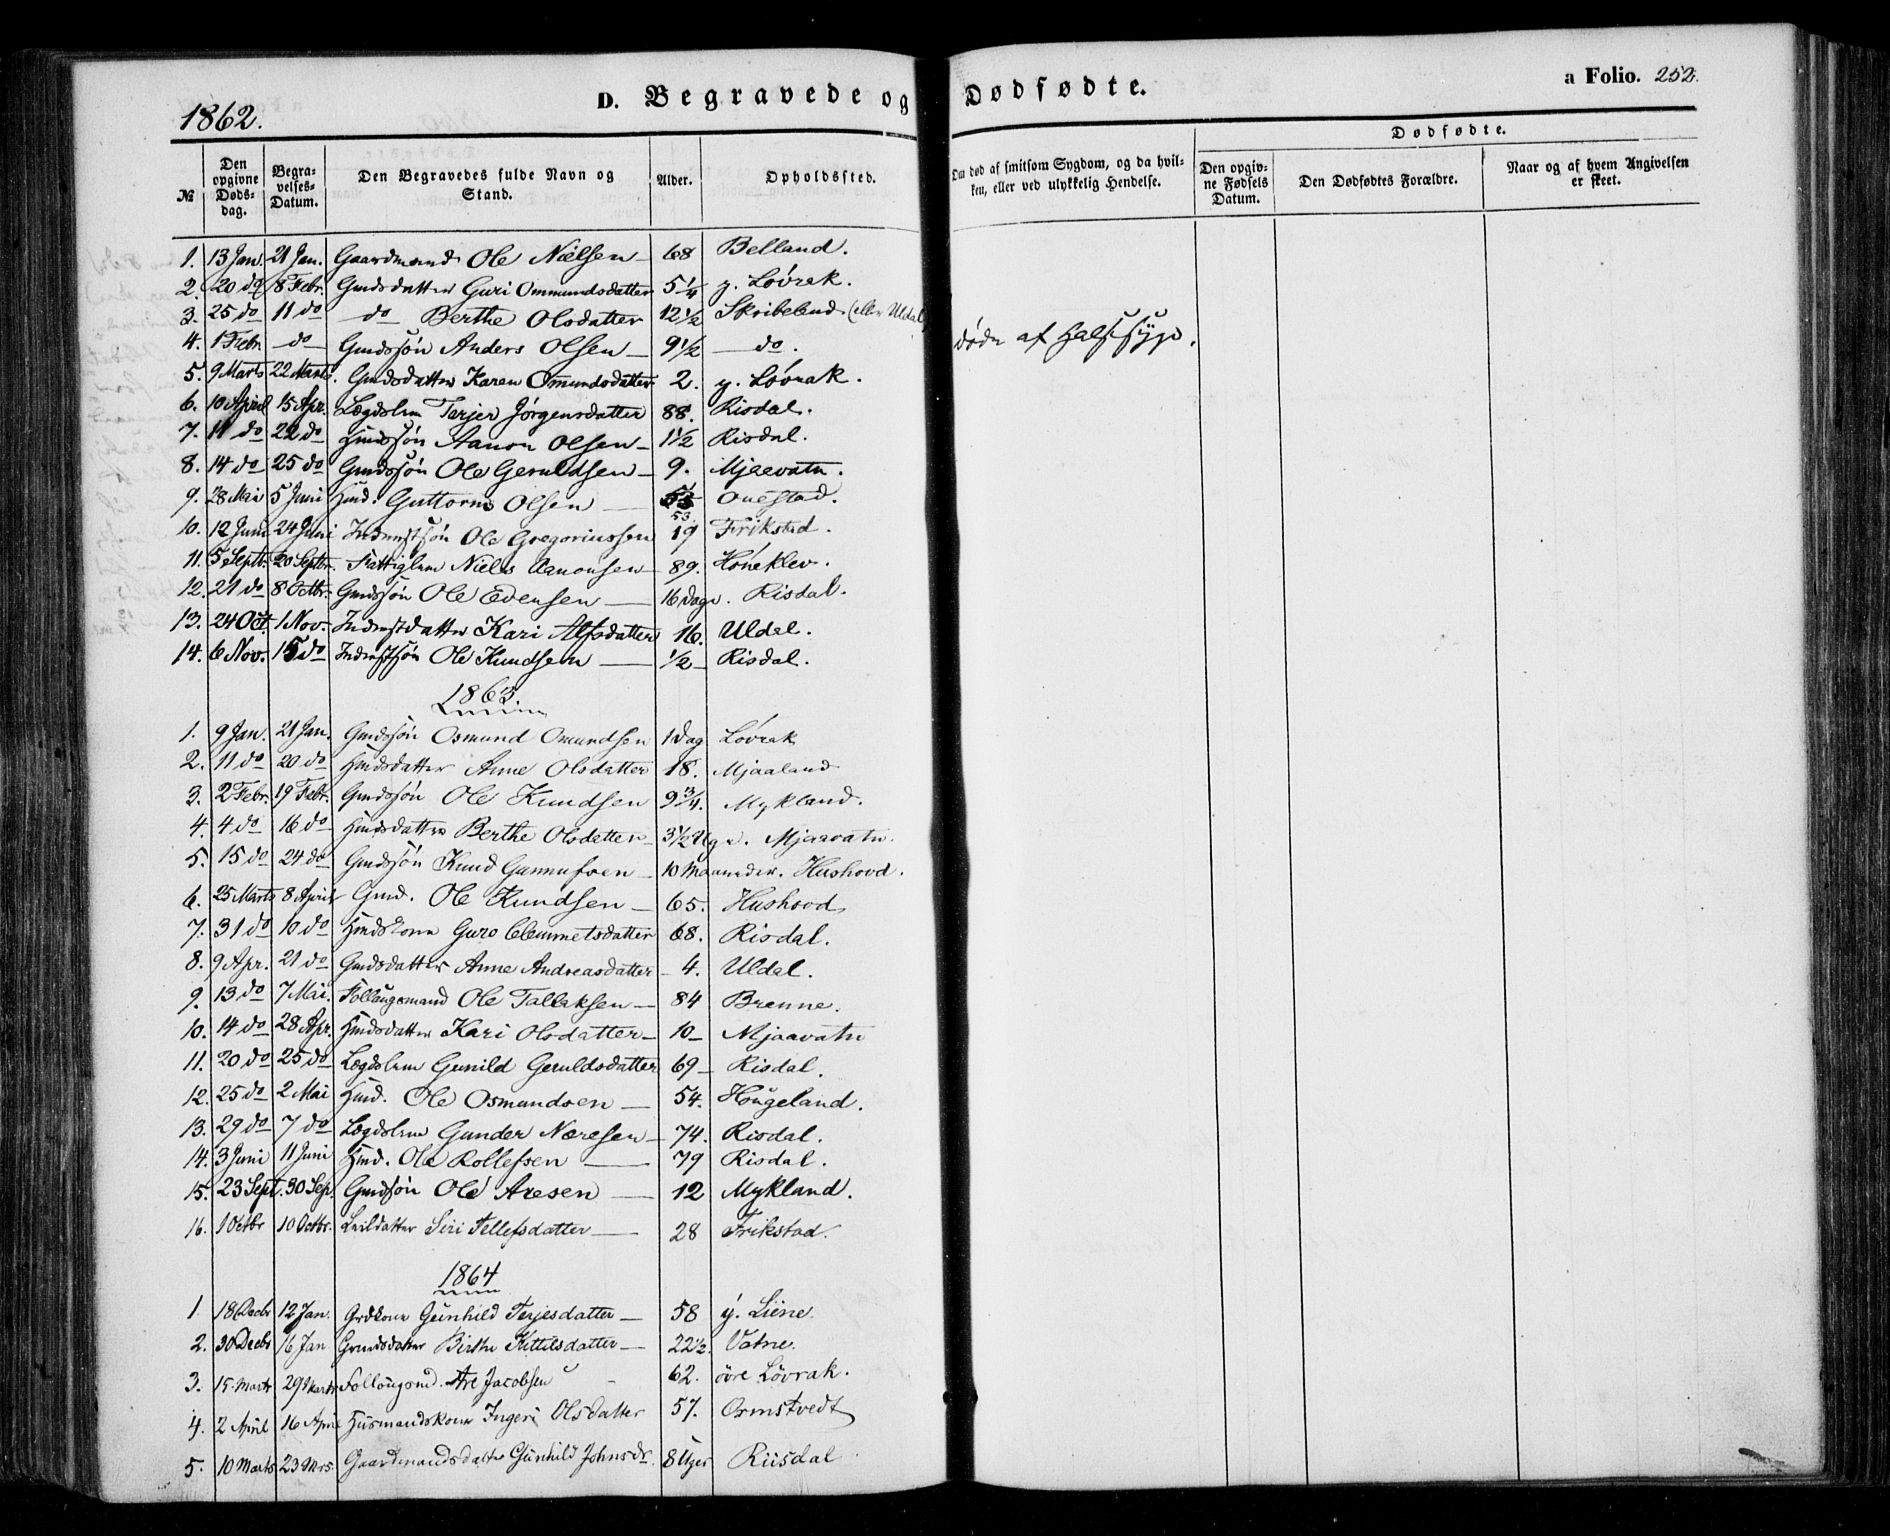 D. Begravede og Dødfødte.
a Folio. 252.
1862.
Dødfødte.
№ Den opgivne Døds-dag. Begra-velses-Datum. Den Begravedes fulde Navn og Stand. Alder. Opholdsfted. Om død af smitsom Sygdom, og da hvil-ken, eller ved ulykkelig Hendelse. Den opgiv-ne Fødsels Datum. Den Dødfødtes Forældre. Naar og af hvem Angivelsen er skeet.
1. 13 Jan. 21 Jan. Gaardmand Ole Nielsen — 68 Belland.
2. 20 do 8 Febr. Gmdsdatter Guri Ommundsdatter 5 1/4 y. Løvrak.
3. 25 do 11 do — do — Berthe Olsdatter 12 1/2 Skribeland (eller Uldal)
4. 1 Febr. — do — Gmdssøn Anders Olsen — 9 1/2 — do. døde af Halssyge.
5. 9 Marts 22 Marts. Gmdsdatter Karen Omundsdatter 2. y. Løvrak.
6. 10 April 15 Apr. Lægdslem Terjer Jørgensdatter 88. Risdal.
7. 11 do 22 do Hmdssøn Aanon Olsen — 1 1/2 Risdal.
8. 14 do 25 do Gmdssøn Ole Geruldsen — 9. Mjaavatn.
9. 28 Mai 5 Juni Hmd. Guttorm Olsen — 53 Ougstad.
10. 12 Juni 24 Juni Inderstsøn Ole Gregoriussen 19 Frikstad.
11. 5 Septr. 20 Septbr. Fattiglem Niels Aanonsen — 89. Høneklev.
12. 21 do 8 Octbr. Gmdssøn Ole Edensen — 16 Dage. Risdal.
13. 24 Oct. 1 Nov. Inderstdatter Kari Alfsdatter 16. Uldal.
14. 6 Nov. 15 do Inderstsøn Ole Knudsen — 1/2 — Risdal.
1863.
1. 9 Jan. 21 Jan. Gmdssøn Osmund Omundsen 1 Dag Løvrak
2. 11 do 20 do Hmdsdatter Anne Olsdatter 18. Mjaaland
3. 2 Febr. 19 Febr. Gmdssøn Ole Knudsen 9 3/4. Mykland.
4. 4 do 16 do Hmdsdatter Berthe Olsdatter — 3 1/2 Uge. Mjaavatn.
5. 15 do 24 do Gmdssøn Knud Gunnufsen — 10 Maaneder. Hushovd.
6. 25 Marts 8 April Gmd. Ole Knudsen — 65. Hushovd
7. 31 do 10 do Hmdskone Guro Clemmetsdatter 68. Risdal.
8. 9 Apr. 21 do Gmdsdatter Anne Andreasdatter — 4. Uldal.
9. 13 do 7 Mai. Follaugsmand Ole Tallaksen — 84 Brenne.
10. 14 do 28 Apr. Hmdsdatter Kari Olsdatter — 10 — Mjaavatn
11. 20 do 25 do Lægdslem Gunild Geruldsdatter 69 — Risdal.
12. 25 do 2 Mai Hmd. Ole Osmundsen — 54. Hougeland.
13. 29 do 7 do Lægdslem Gunder Næresen — 74. Risdal.
14. 3 Juni 11 Juni Hmd. Ole Rollefsen — 79 Risdal.
15. 23 Sept. 30 Sep. Gmdsøn Ole Aresen — 12 Mykland.
16. 1 Octbr 10 Octbr. Leildatter Siri Tellefsdatter — 28 Frikstad.
1864
1. 18 Decbr 12 Jan. Grdkone Gunhild Terjesdatter — 58 y. Liine.
2. 30 Decbr 16 Jan Grmdsdatter Birthe Kittilsdatter — 22 1/2. Vatne.
3. 15 Marts 29 Marts Follougsmd. Are Jacobsen - 62. övre Lövrak.
4. 2 April 16 April Husmandskone Ingeri Olsdatter 57. Ormstvedt
5. 10 Marts 23 Mrs. Gaardmandsdatter Gunhild Johnsdr. 8 Uger Riisdal